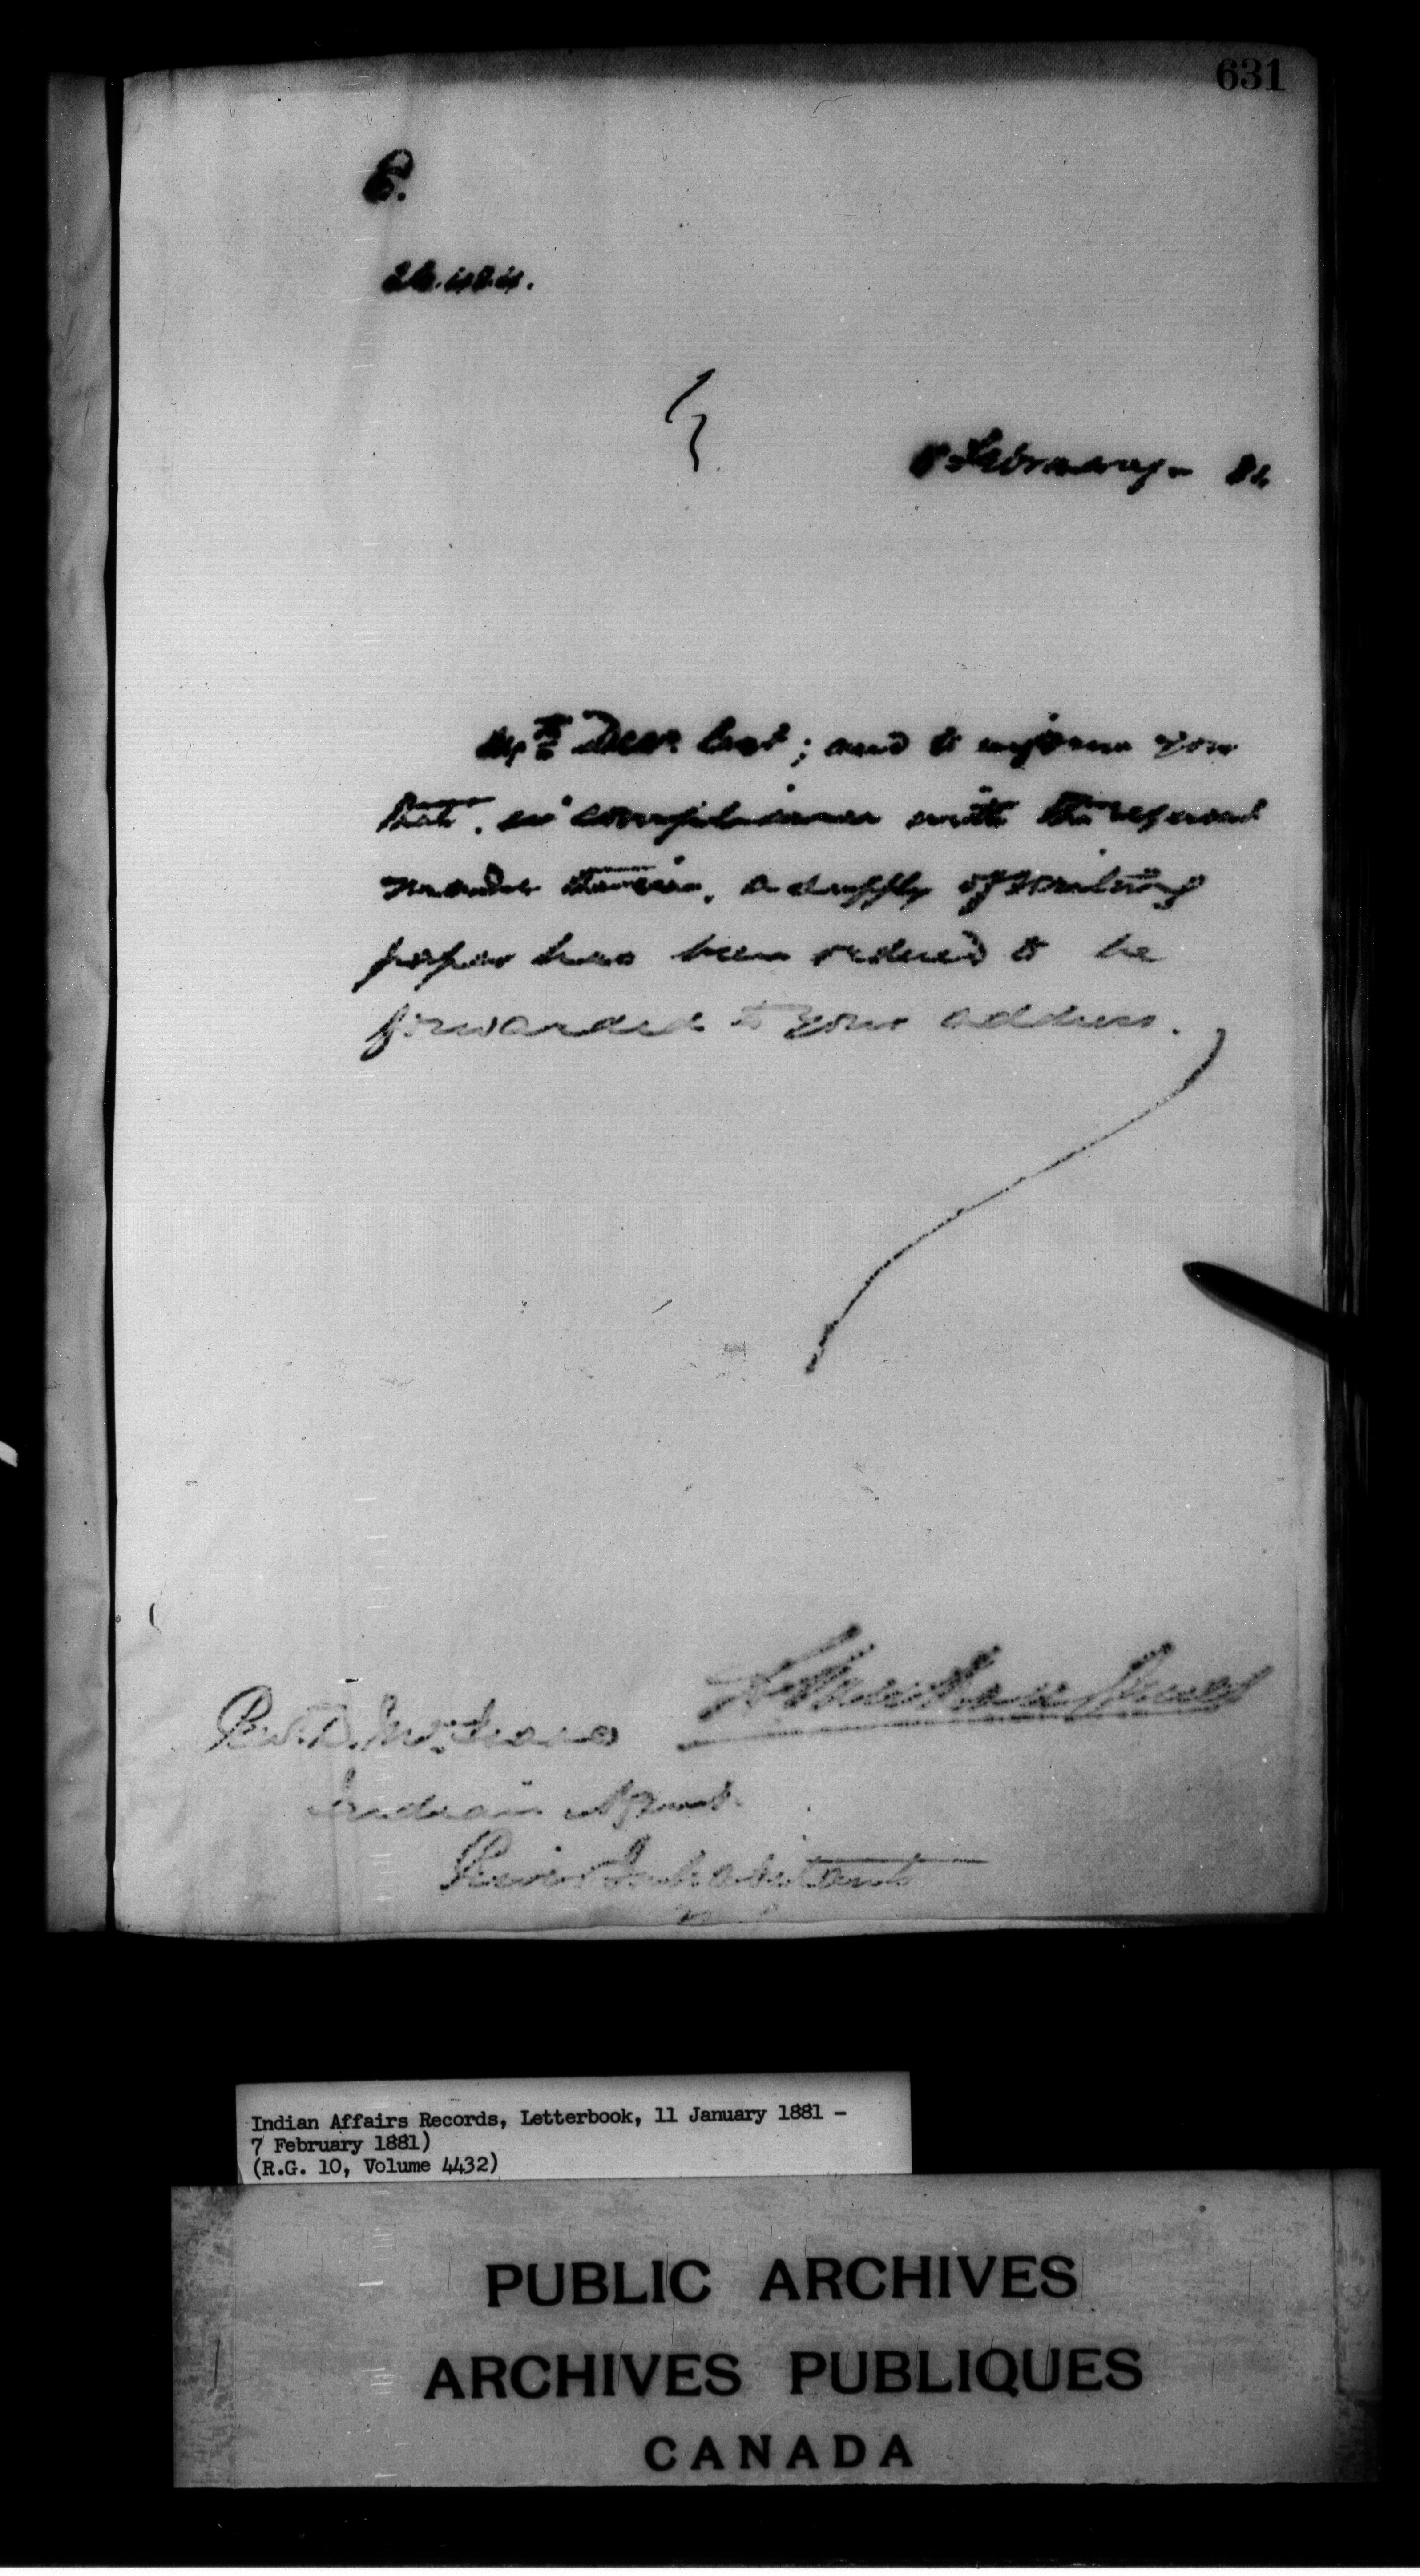 631
E.
February 81
of the 7th Decr. last; and to inform you
that, in compliance with the request
made therein, a supply of writing
paper has been ordered to be
forwarded to your address.
L. Vankoughnet
Rev. D. McIsaac
Indian Agent.
River Inhabitants
N.S.
Indian Affairs Records, Letterbook, 11 January 1881 -
7 February 1881)
(R.G. 10, Volume 4432)
PUBLIC ARCHIVES
ARCHIVES PUBLIQUES
CANADA